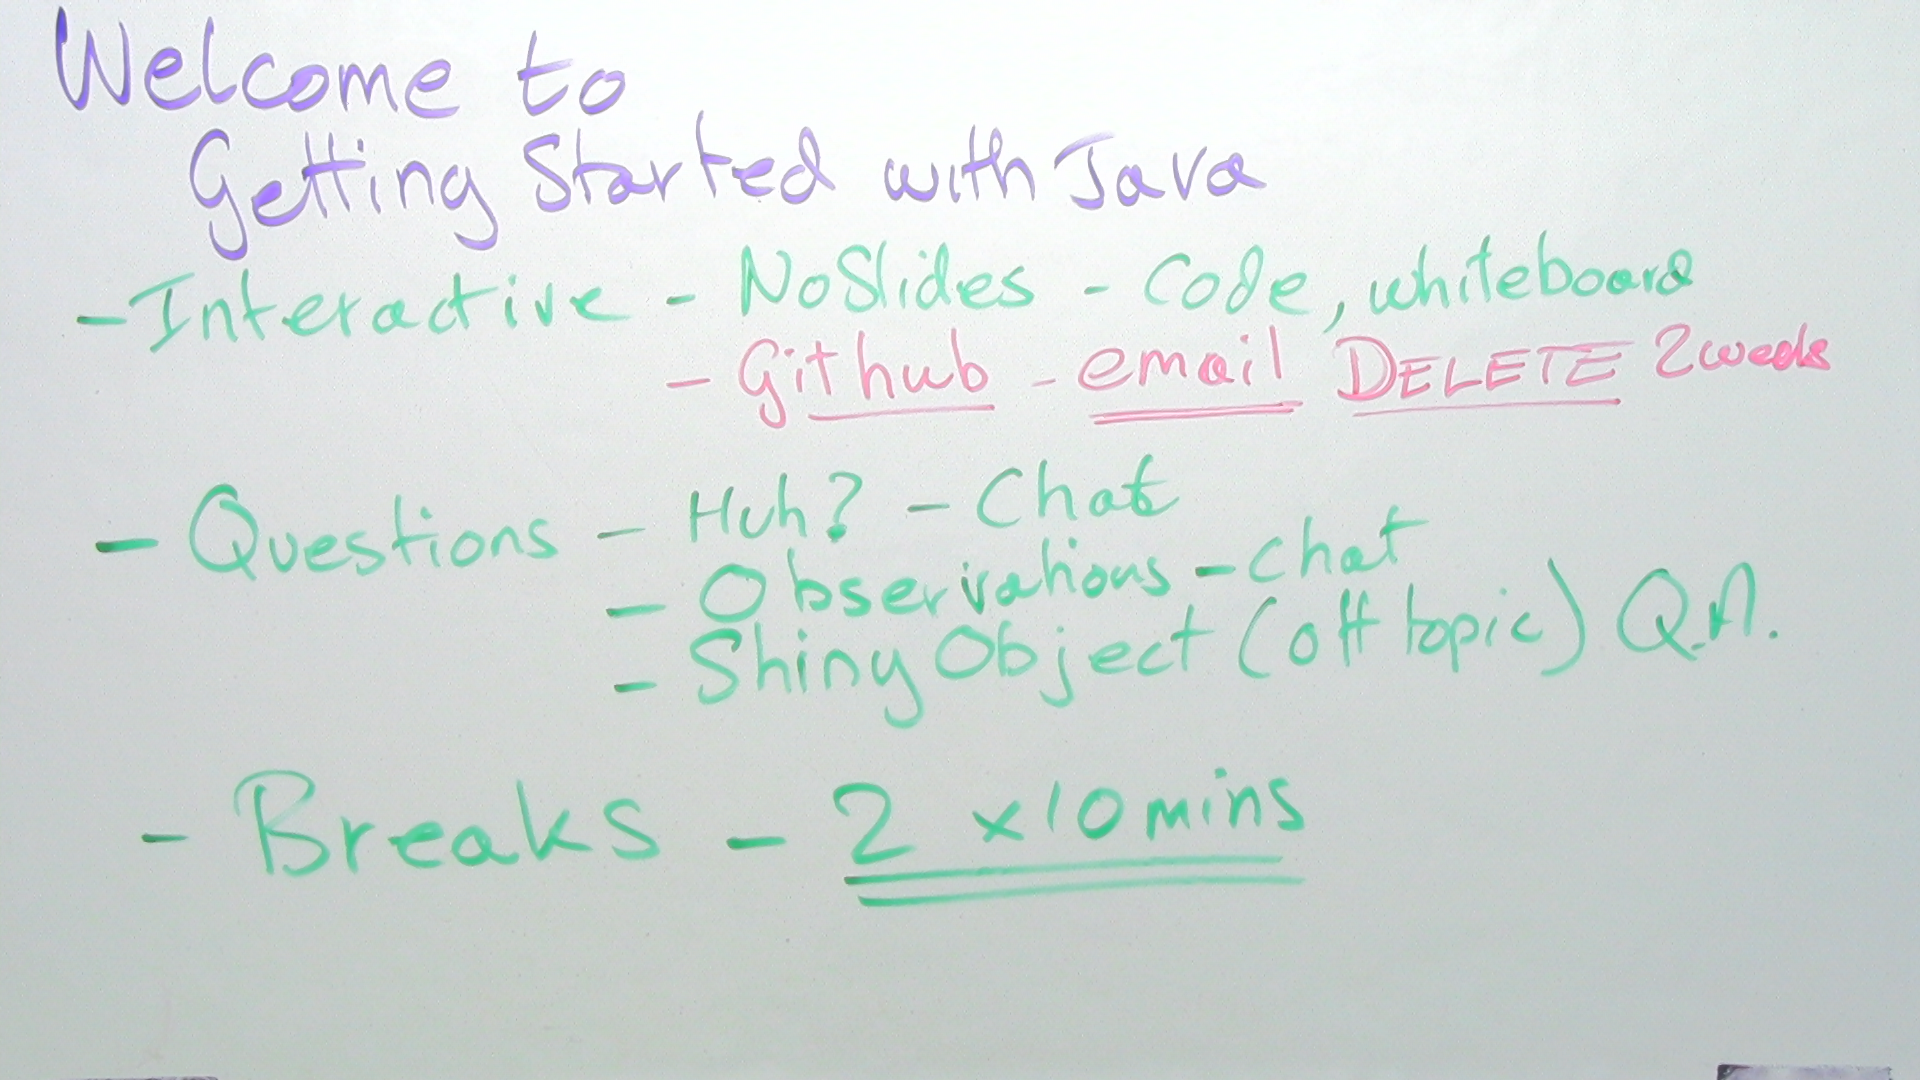 Welcome to
Getting Started with Java
- Interactive - No Slides - Code, whiteboard
- Github - email DELETE 2 weeks
- Questions - Huh? - Chat
- Observations - Chat
- Shiny Object (off topic) Q.A.
- Breaks - 2 x 10 mins